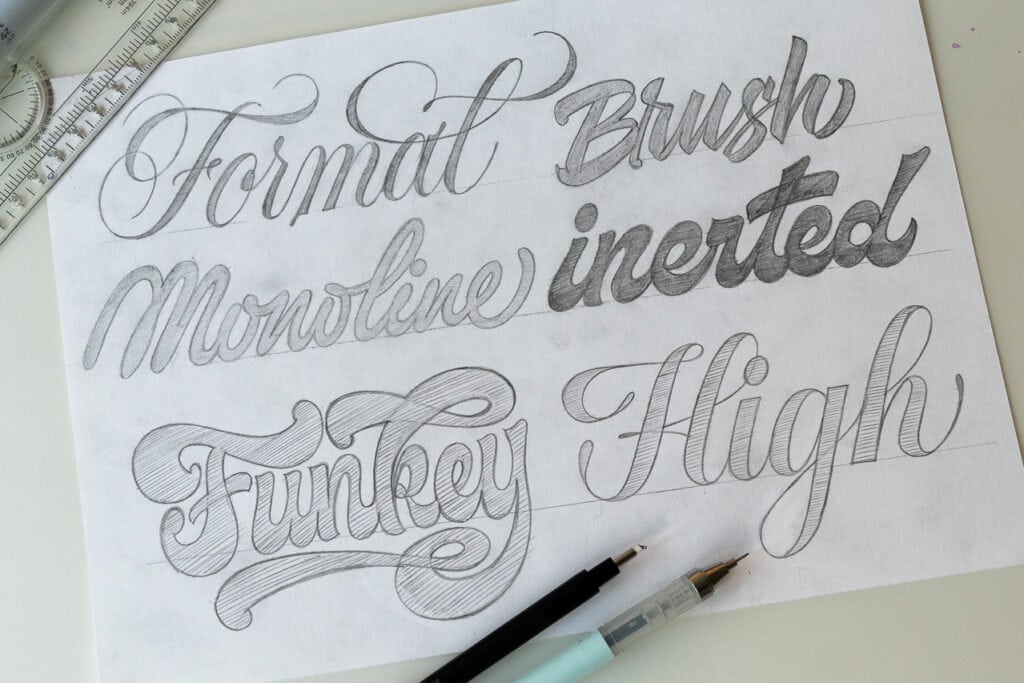 Formal Brush
Monoline inerted
Funkey High